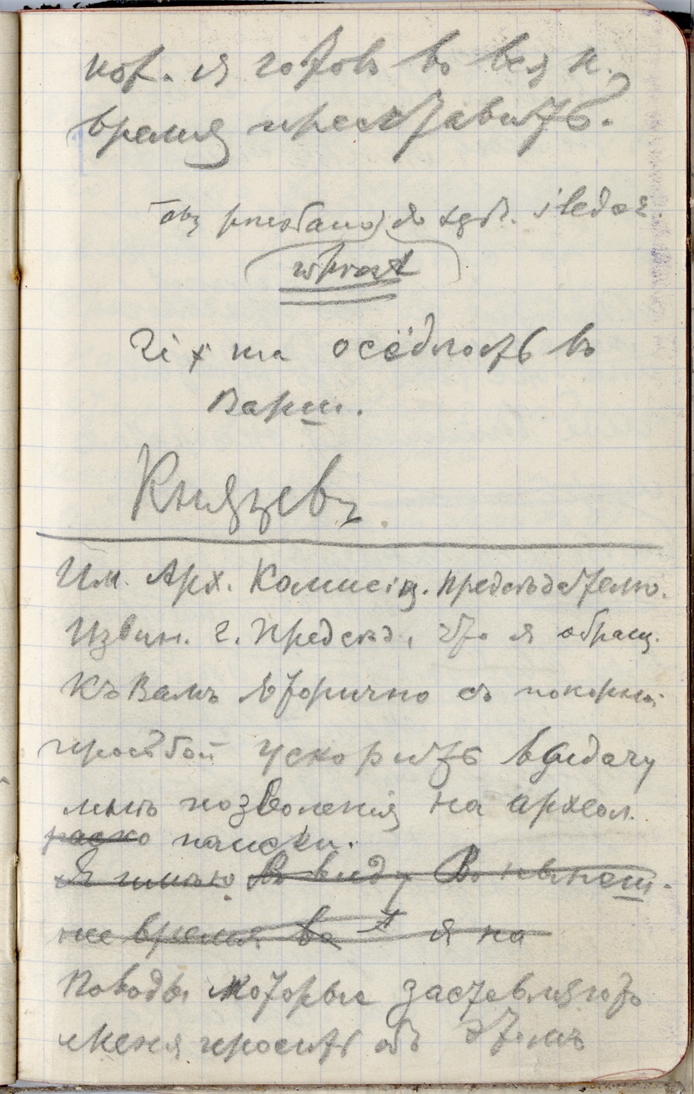 кот. я готовъ во вся к.
время представить.
wprost
осёдлость въ
Варш.
Князевъ.
Им. Арх. Комисіи. Предсѣдателю.
Извин. г. Предсѣд., что я обращ.
Къ Вамъ вторично съ покорной
просьбой ускорить выдачу
мнѣ позволенія на археол.
раско поиски.
Я имѣю Въ виду Въ нынеш.
нее время я на
Поводы которые заставляютъ
меня просить объ этомъ